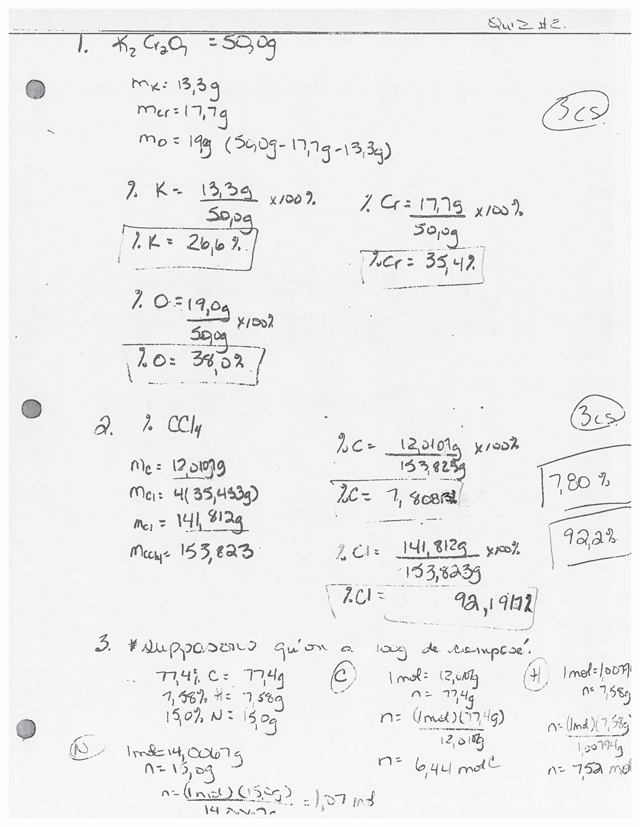 Quiz #2.
1. K₂Cr₂O₇ = 50,0g
mK = 13,3g
mCr = 17,7g
mO = 19g (50,0g - 17,7g - 13,3g)
3cs
% K = 13,3g / 50,0g x100%
% K = 26,6%
% Cr = 17,7g / 50,0g x100%
% Cr = 35,4%
% O = 19,0g / 50,0g x100%
% O = 38,0%
3cs
2. % CCl4
mC = 12,0107g
mCl = 4(35,453g)
mCl = 141,812g
mCCl4 = 153,823
% C = 12,0107g / 153,823g x100%
% C = 7,808
7,80 %
92,2%
% Cl = 141,812g / 153,823g x100%
% Cl = 92,191
3. * Supposons qu'on a 100g de composé.
77,4% C = 77,4g
7,58% H = 7,58g
15,0% N = 15,0g
C
1mol = 12,0107g
n = 77,4g
n = (1mol)(77,4g) / 12,0107g
n = 6,44 mol C
H
1mol = 1,0079
n = 7,58g
n = (1mol)(7,58g / 1,00794g
n = 7,52 mol
N
1mol = 14,0067g
n = 15,0g
n = (1mol)(15,0g) / 14 = 1,07 mol